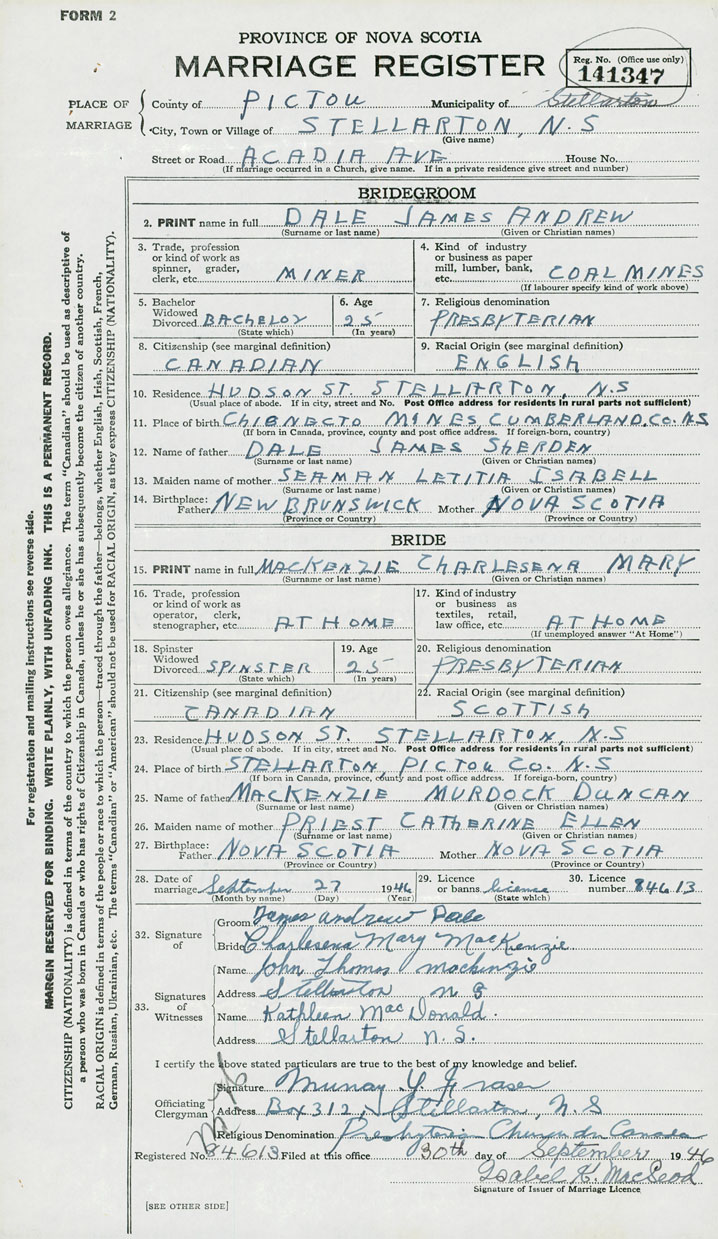 FORM 2
PROVINCE OF NOVA SCOTIA
MARRIAGE REGISTER
Reg. No. (Office use only)
141347
PLACE OF MARRIAGE
County of PICTOU Municipality of Stellarton
City, Town or Village of STELLARTON, N.S
(Give name)
Street or Road ACADIA AVE House No.
(If marriage occurred in a Church, give name. If in a private residence give street and number)
BRIDEGROOM
2. PRINT name in full DALE JAMES ANDREW
(Surname or last name) (Given or Christian names)
3. Trade, profession or kind of work as spinner, grader, clerk, etc. MINER
4. Kind of industry or business as paper mill, lumber, bank, etc. COAL MINES
(If labourer specify kind of work above)
5. Bachelor Widowed Divorced BACHELOY
(State which)
6. Age 25
(In years)
7. Religious denomination
PRESBYTERIAN
8. Citizenship (see marginal definition)
CANADIAN
9. Racial Origin (see marginal definition)
ENGLISH
10. Residence HUDSON ST. STELLARTON, N.S
(Usual place of abode. If in city, street and No. Post Office address for residents in rural parts not sufficient)
11. Place of birth CHIGNECTO MINES CUMBERLAND.CO.NS
(If born in Canada, province, county and post office address. If foreign-born, country)
12. Name of father DALE JAMES SHERDEN
(Surname or last name) (Given or Christian names)
13. Maiden name of mother SEAMAN LETITIA ISABELL
(Surname or last name) (Given or Christian names)
14. Birthplace: Father NEW BRUNSWICK Mother NOVA SCOTIA
(Province or Country) (Province or Country)
BRIDE
15. PRINT name in full MACKENZIE CHARLESENA MARY
(Surname or last name) (Given or Christian names)
16. Trade, profession or kind of work as operator, clerk, stenographer, etc. AT HOME
17. Kind of industry or business as textiles, retail, law office, etc. AT HOME
(If unemployed answer "At Home")
18. Spinster Widowed Divorced SPINSTER
(State which)
19. Age 25
(In years)
20. Religious denomination
PRESBYTERIAN
21. Citizenship (see marginal definition)
CANADIAN
22. Racial Origin (see marginal definition)
SCOTTISH
23. Residence HUDSON ST. STELLARTON, N.S
(Usual place of abode. If in city, street and No. Post Office address for residents in rural parts not sufficient)
24. Place of birth STELLARTON, PICTOU CO. N.S
(If born in Canada, province, county and post office address. If foreign-born, country)
25. Name of father MACKENZIE MURDOCK DUNCAN
(Surname or last name) (Given or Christian names)
26. Maiden name of mother PRIEST CATHERINE ELLEN
(Surname or last name) (Given or Christian names)
27. Birthplace: Father NOVA SCOTIA Mother NOVA SCOTIA
(Province or Country) (Province or Country)
28. Date of marriage September 27 1946
(Month by name) (Day) (Year)
29. Licence or banns license
(State which)
30. Licence number 84613
32. Signature of
Groom James Andrew Dale
Bride Charlesena Mary MacKenzie
33. Signatures of Witnesses
Name John Thomas Mackenzie
Address Stellarton N S
Name Kathleen MacDonald.
Address Stellarton N. S.
I certify the above stated particulars are true to the best of my knowledge and belief.
Officiating Clergyman
Signature Murray Y. Fraser
Address Box 312, Stellarton, N.S
Religious Denomination Presbyterian Church in Canada
Registered No. 84613 Filed at this office 30th day of September 1946
Isabel K. MacLeod
Signature of Issuer of Marriage Licence
[SEE OTHER SIDE]
For registration and mailing instructions see reverse side.
MARGIN RESERVED FOR BINDING. WRITE PLAINLY, WITH UNFADING INK. THIS IS A PERMANENT RECORD.
CITIZENSHIP (NATIONALITY) is defined in terms of the country to which the person owes allegiance. The term "Canadian" should be used as descriptive of
a person who was born in Canada or who has rights of Citizenship in Canada, unless he or she has subsequently become the citizen of another country.
RACIAL ORIGIN is defined in terms of the people or race to which the person—traced through the father—belongs, whether English, Irish, Scottish, French,
German, Russian, Ukrainian, etc. The terms "Canadian" or "American" should not be used for RACIAL ORIGIN, as they express CITIZENSHIP (NATIONALITY).